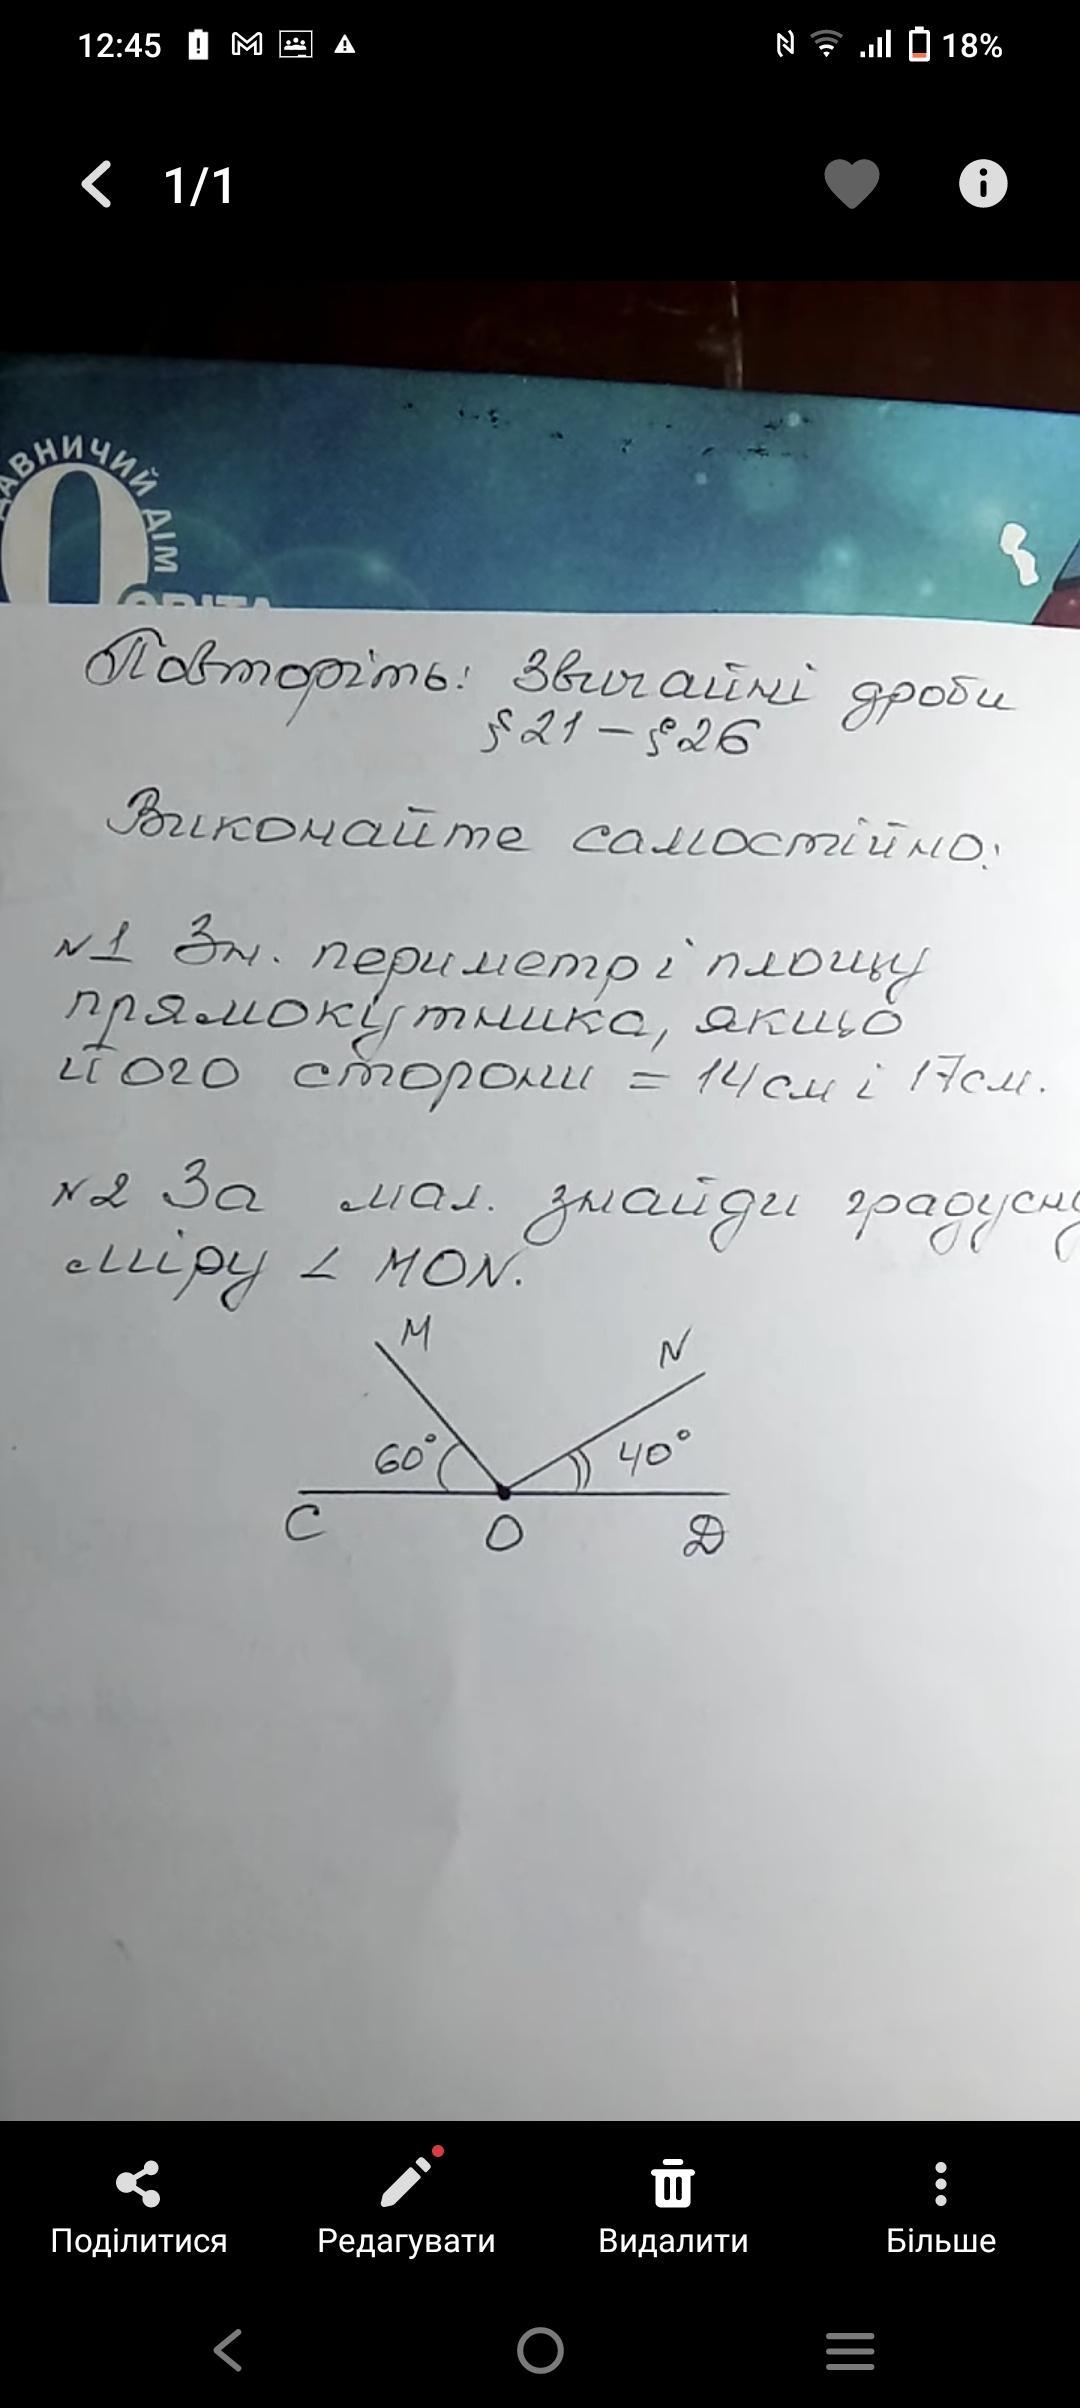 12:45
18%
1/1
ДАВНИЧИЙ ДІМ
ОСВІТА
Повторіть: Звичайні дроби
§21 – §26
Виконайте самостійно:
№1 Зн. периметр і площу
прямокутника, якщо
його сторони = 14см і 17см.
№2 За мал. знайди градусну
міру ∠ MON.
M
N
60°
40°
C
O
D
Поділитися
Редагувати
Видалити
Більше